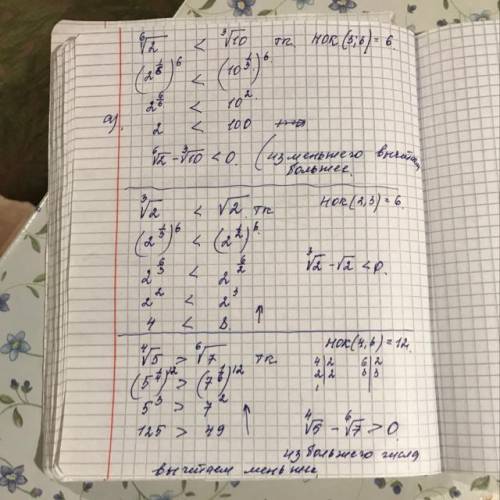 ⁶√2 < ³√10 тк НОК(3;6) = 6.
(2^(1/6))^6 < (10^(1/3))^6
2^(6/6) < 10^2
а). 2 < 100
⁶√2 - ³√10 < 0. (из меньшего вычитаем
большее.
³√2 < √2 тк НОК(2,3) = 6.
(2^(1/3))^6 < (2^(1/2))^6
2^(6/3) < 2^(6/2) ³√2 - √2 < 0.
2^2 < 2^3
4 < 8. ↑
⁴√5 > ⁶√7 тк НОК(4,6) = 12.
(5^(1/4))^12 > (7^(1/6))^12 4|2 6|2
2|2 3|3
5^3 > 7^2 1
125 > 49 ↑ ⁴√5 - ⁶√7 > 0.
из большего числа
вычитаем меньшее